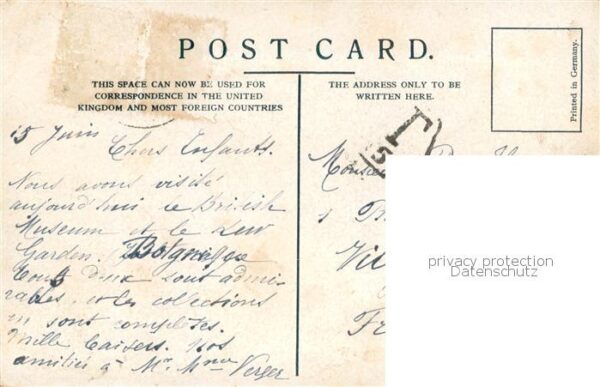 POST CARD.
THIS SPACE CAN NOW BE USED FOR
CORRESPONDENCE IN THE UNITED
KINGDOM AND MOST FOREIGN COUNTRIES
THE ADDRESS ONLY TO BE
WRITTEN HERE.
Printed in Germany.
15 Juin
Chers Enfants.
Nous avons visité
aujourd'hui le British
Museum et le Kew
Garden.
Tous deux sont admi-
rables, et les collections
y sont complètes.
Mille baisers. Nos
amitiés à Mr. Mme Verger
privacy protection
Datenschutz